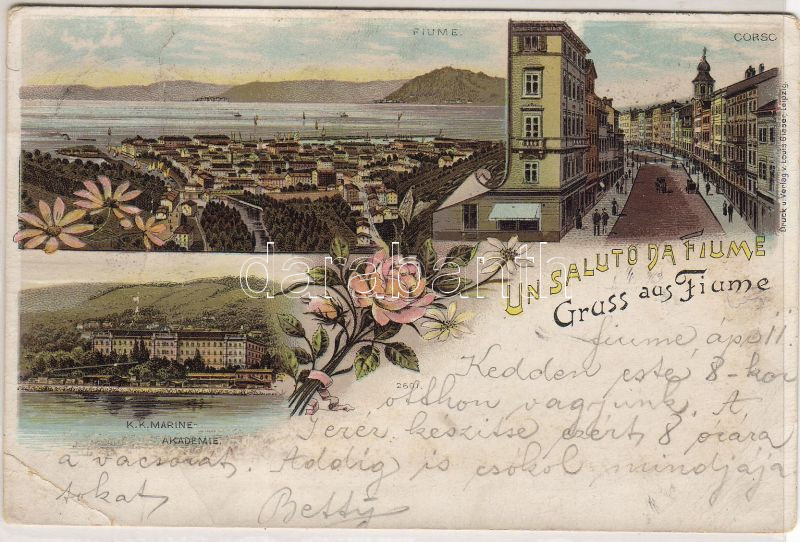 FIUME.
CORSO
Druck u. Verlag v. Louis Glaser Leipzig.
darabanth
UN SALUTO DA FIUME
Gruss aus Fiume
2601.
K.K. MARINE-
AKADEMIE.
Fiume áp. 11.
Kedden este 8-kor
otthon vagyunk. A
Teréz készitse ezért 8 órára
a vacsorát. Addig is csókol mindjája
tokat
Betty